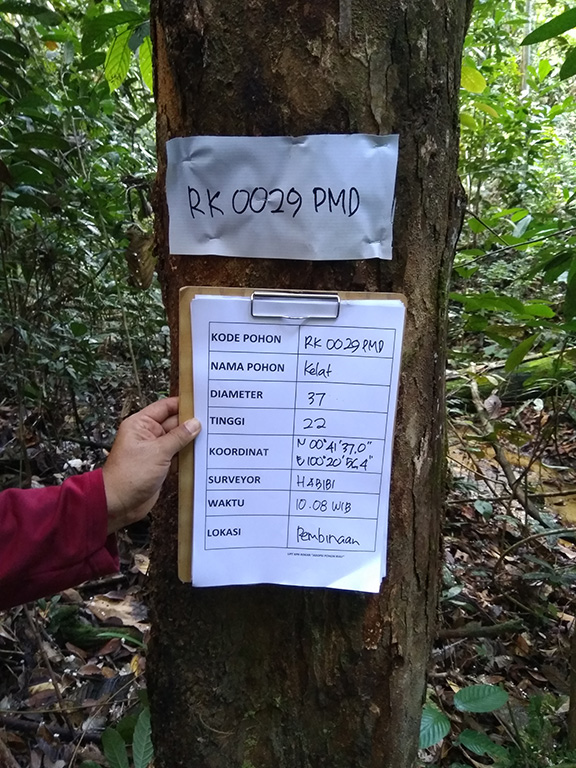 RK 0029 PMD
KODE POHON RK 0029 PMD
NAMA POHON Kelat
DIAMETER 37
TINGGI 22
KOORDINAT N 00°41'37.0"
E 100°20'56,4"
SURVEYOR HABIBI
WAKTU 10.08 WIB
LOKASI Pembinaan